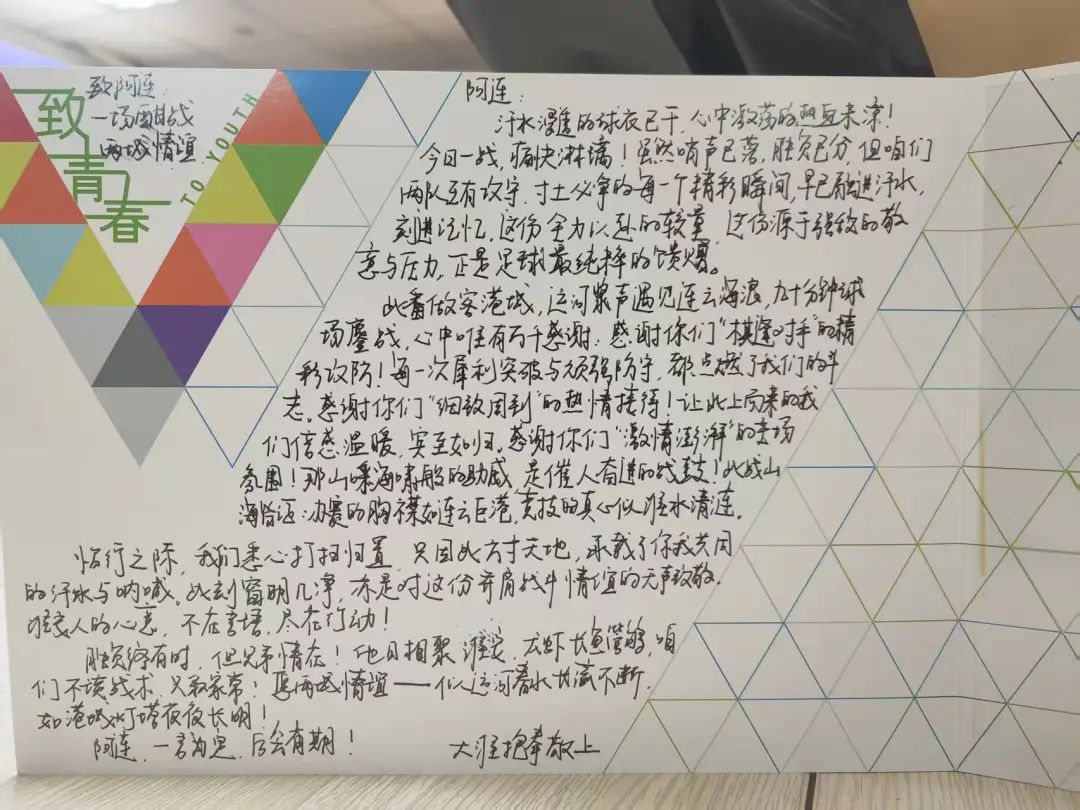 致青春
TO YOUTH
致阿连:
一场酣战
两城情谊
阿连:
汗水浸透的球衣已干,心中激荡的热血未凉!
今日一战,痛快淋漓!虽然哨声已落,胜负已分,但咱们
两队互有攻守、寸土必争的每一个精彩瞬间,早已融进汗水,
刻进记忆。这份全力以赴的较量,这份源于强敌的敬
意与压力,正是足球最纯粹的馈赠。
此番做客港城,运河泉声遇见连云海浪,九十分钟球
场鏖战,心中唯有万千感谢:感谢你们“棋逢对手”的精
彩攻防!每一次犀利突破与顽强防守,都点燃了我们的斗
志。感谢你们“细致周到”的热情接待!让北上而来的我
们倍感温暖,宾至如归。感谢你们“激情澎湃”的主场
氛围!那山呼海啸般的助威,是催人奋进的战鼓!此战山
海皆证:办赛的胸襟如连云巨港,竞技的真心似淮水清涟。
临行之际,我们悉心打扫归置,只因此方寸天地,承载了你我共同
的汗水与呐喊。此刻窗明几净,亦是对这份并肩战斗情谊的无声致敬。
淮安人的心意,不在言语,尽在行动!
胜负终有时,但兄弟情在!他日相聚淮安,龙虾长鱼管够,咱
们不谈战术,只叙家常!愿两城情谊——似运河春水长流不断,
如港城灯塔夜夜长明!
阿连,一言为定,后会有期!
大淮抱拳敬上